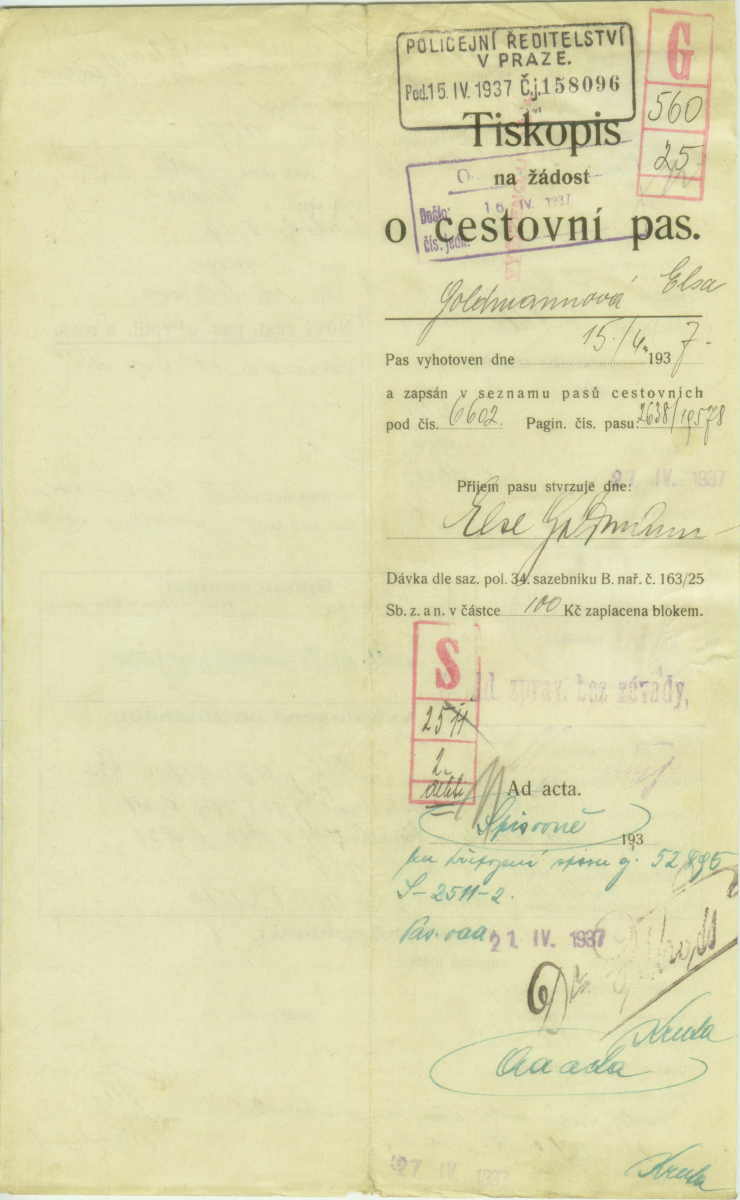 POLICEJNÍ ŘEDITELSTVÍ
V PRAZE.
Pod. 15. IV. 1937 Č.j. 158096
G
560
25
Tiskopis
na žádost
16. IV. 1937
Došlo:
čís. jedn.
o cestovní pas.
Goldmannová Elsa
Pas vyhotoven dne 15./4. 1937.
a zapsán v seznamu pasů cestovních
pod čís. 6602. Pagin. čís. pasu: 2638/19578
27 IV. 1937
Příjem pasu stvrzuje dne:
Else Goldmann
Dávka dle saz. pol. 34. sazebníku B. nař. č. 163/25
Sb. z. a n. v částce 100 Kč zaplacena blokem.
S
2511
2
bez závady,
Ad acta.
Spisovně
193
S-2511-2.
21. IV. 1937
Dr.
Kruta
Ad acta
27 IV. 1937
Kruta